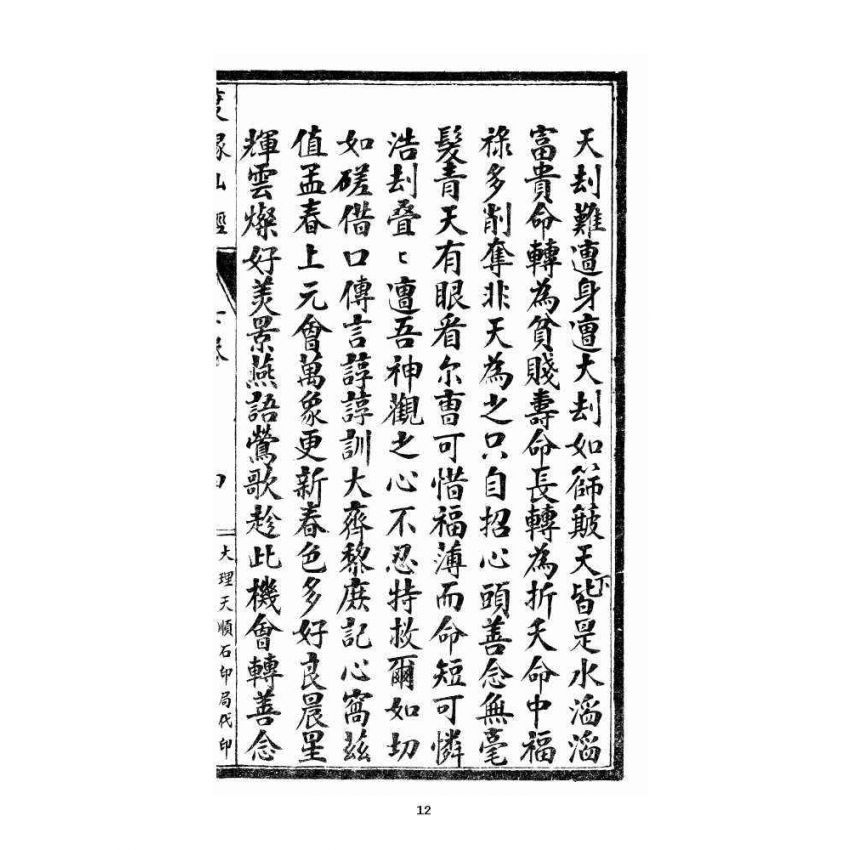 天刦難遭身遭大刦如篩簸天下皆是水滔滔
富貴命轉為貧賤壽命長轉為折夭命中福
祿多削奪非天為之只自招心頭善念無毫
髮青天有眼看尔曹可惜福薄而命短可憐
浩刦叠〻遭吾神觀之心不忍特救爾如切
如磋借口傳言諄諄訓大齊黎庶記心窩茲
值孟春上元會萬象更新春色多好良晨星
輝雲燦好美景燕語鶯歌趁此機會轉善念
大理天順石印局代印
12